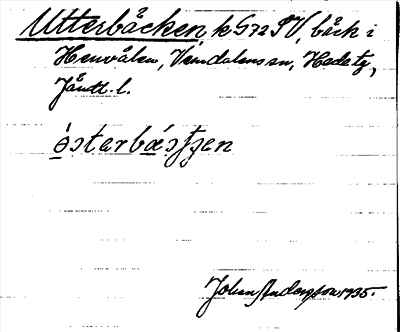 Utterbäcken, k G72 SV, bäck i
Henvålen, Vemdalens sn, Hede tg,
Jämtl. l.
ósterbæstʃen
Johan Andersson 1935.